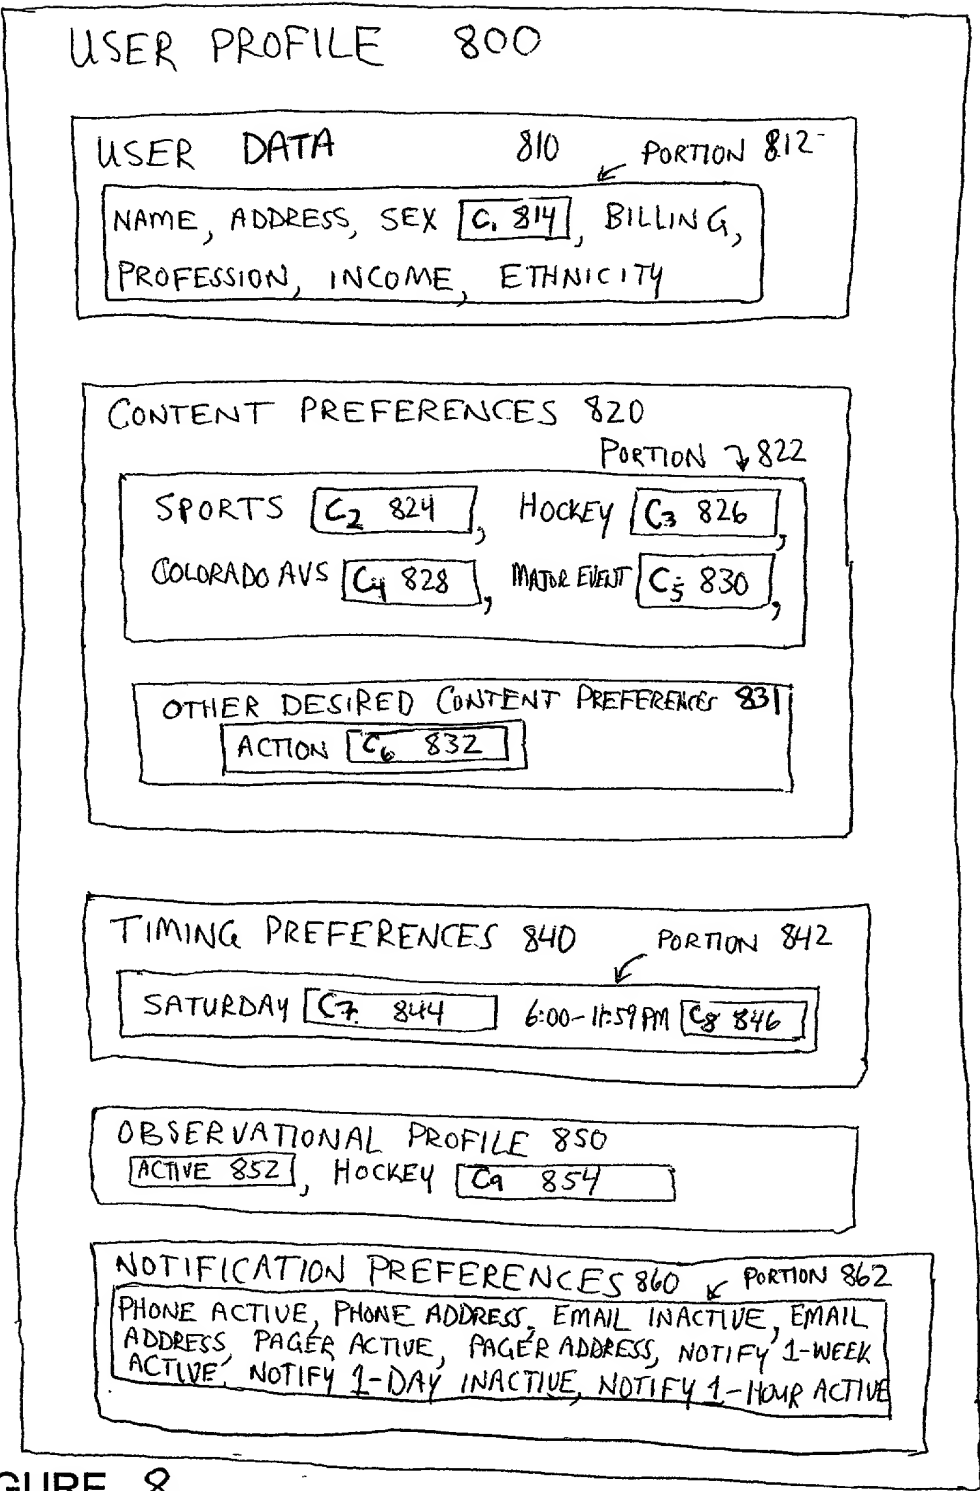 USER PROFILE 800
USER DATA 810 PORTION 812
NAME, ADDRESS, SEX C1 814, BILLING,
PROFESSION, INCOME, ETHNICITY
CONTENT PREFERENCES 820
PORTION 822
SPORTS C2 824, HOCKEY C3 826,
COLORADO AVS C4 828, MAJOR EVENT C5 830,
OTHER DESIRED CONTENT PREFERENCES 831
ACTION C6 832
TIMING PREFERENCES 840 PORTION 842
SATURDAY C7 844 6:00-11:59 PM C8 846
OBSERVATIONAL PROFILE 850
ACTIVE 852, HOCKEY C9 854
NOTIFICATION PREFERENCES 860 PORTION 862
PHONE ACTIVE, PHONE ADDRESS, EMAIL INACTIVE, EMAIL
ADDRESS, PAGER ACTIVE, PAGER ADDRESS, NOTIFY 1-WEEK
ACTIVE, NOTIFY 1-DAY INACTIVE, NOTIFY 1-HOUR ACTIVE
GURE 8